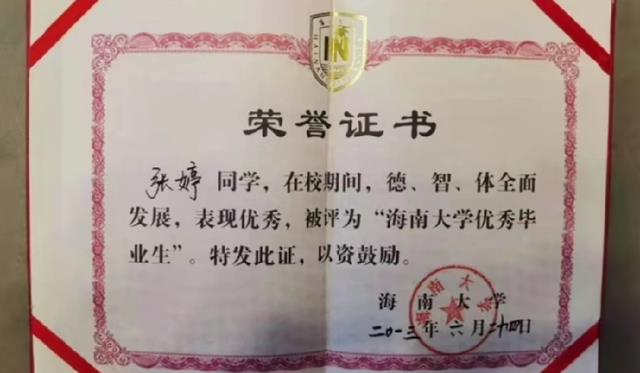 荣誉证书
张婷 同学，在校期间，德、智、体全面
发展，表现优秀，被评为“海南大学优秀毕
业生”。特发此证，以资鼓励。
海南大学
海南大学
二〇一三年六月二十四日